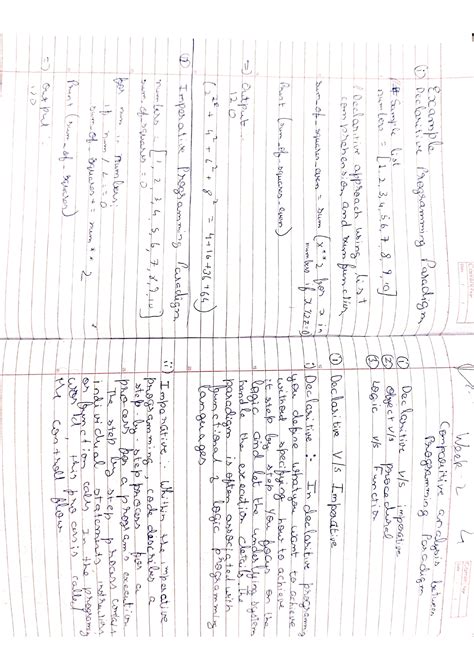 Week 2
Comparitive analysis between
Programming Paradigm
(1) Declaritive v/s imperative
(2) object v/s Procedural
(3) Logic v/s Function
(1) Declaritive V/s Imperative
i) Declaritive : In declaritive programming
you define what you want to achieve
without specifying how to achieve
it step by step you focus on the
logic and let the underlying system
handle the execution details. The
paradigm is often associated with
functional & logic programming
languages
ii) Imperative : Within the imperative
programming, code describes a
step by step process for a
process for a programs execution
The step by step process contains
individual statements instruction
or function calls In the programming
world, this process is called
the control flow.
Example
(i) Declaritive Programming Paradigm
# Sample list
numbers = [1, 2, 3, 4, 5, 6, 7, 8, 9, 10]
# Declaritive approach using list
comprehension and sum function
sum_of_squares_even = sum (x**2 for x in
numbers if x%2==0)
Print (sum_of_squares_even)
=> Output:
120
(2² + 4² + 6² + 8² = 4+16+36+64)
(2) Imperative Programming Paradigm
numbers = [1, 2, 3, 4, 5, 6, 7, 8, 9, 10]
sum_of_squares = 0
for num in numbers:
if num % 2 == 0
sum_of_squares += num ** 2
Print (sum_of_squares)
=> output: